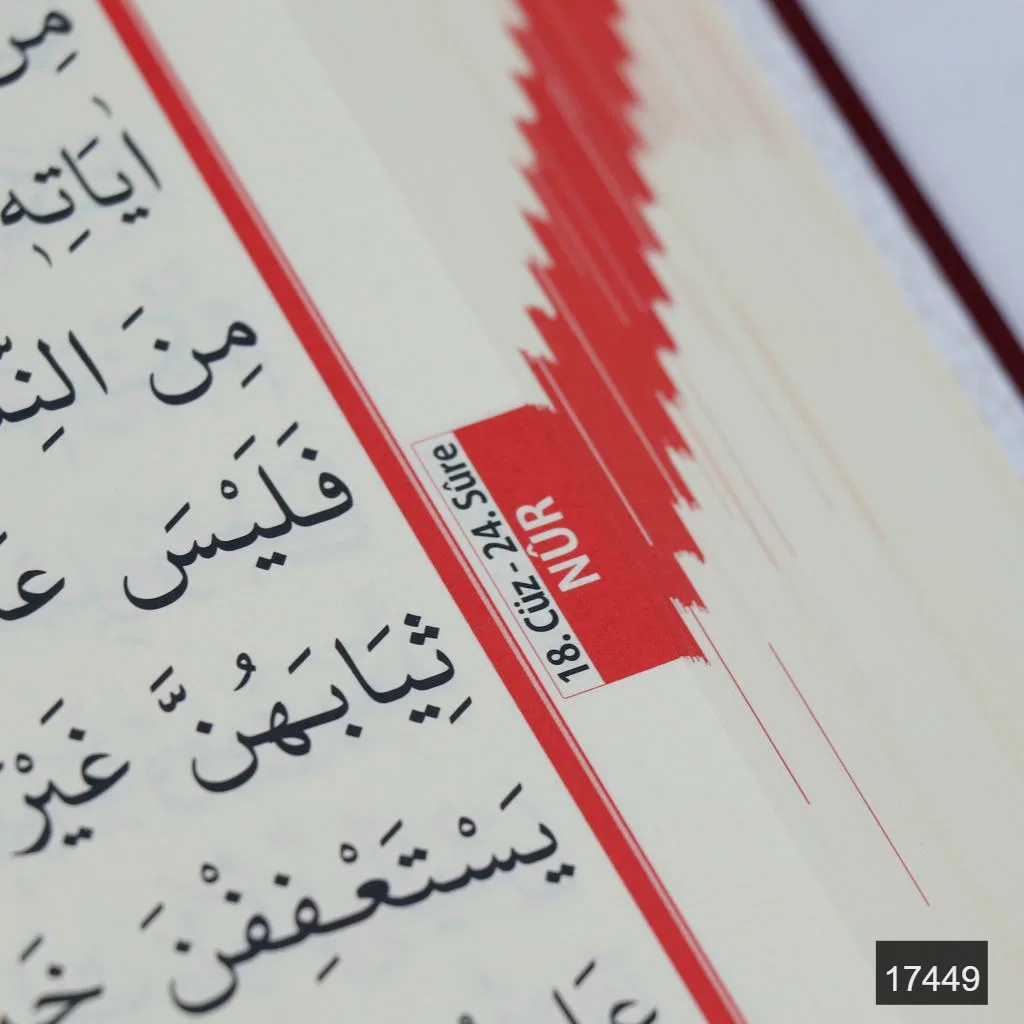 مِن
اٰيَاتِهٖ
مِنَ
فَلَيْسَ
ثِيَابَهُنَّ غَيْرَ
يَسْتَعْفِفْنَ
18. Cüz - 24. Sûre
NÛR
17449